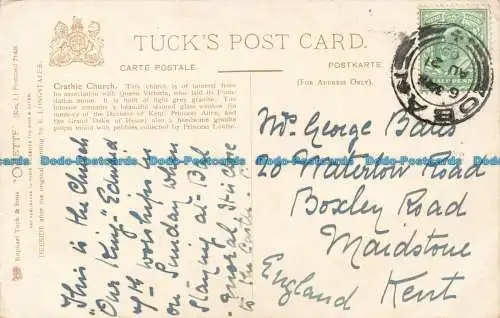 TUCK'S POST CARD.
CARTE POSTALE.
POSTKARTE.
(FOR ADDRESS ONLY).
Crathie Church. This church is of interest from
its association with Queen Victoria, who laid its Foun-
dation stone. It is built of light grey granite. The
interior contains a beautiful stained glass window the
memory of the Duchess of Kent; Princess Alice, and
the Grand Duke of Hesse; also a handsome granite
pulpit inlaid with pebbles collected by Princess Louise.
Raphael Tuck & Sons "OILETTE" [REGD.] Postcard
DESIGNED after the original
This is the Church
"Our King" Edward
7th worships in
on Sunday when
staying at Bal
moral. It is close
to the Castle.
Mr. George Batts
20 Waterlow Road
Boxley Road
Maidstone
Kent
England
HALFPENNY
OBAN
Dodo-Postcards Dodo-Postcards Dodo-Postcards